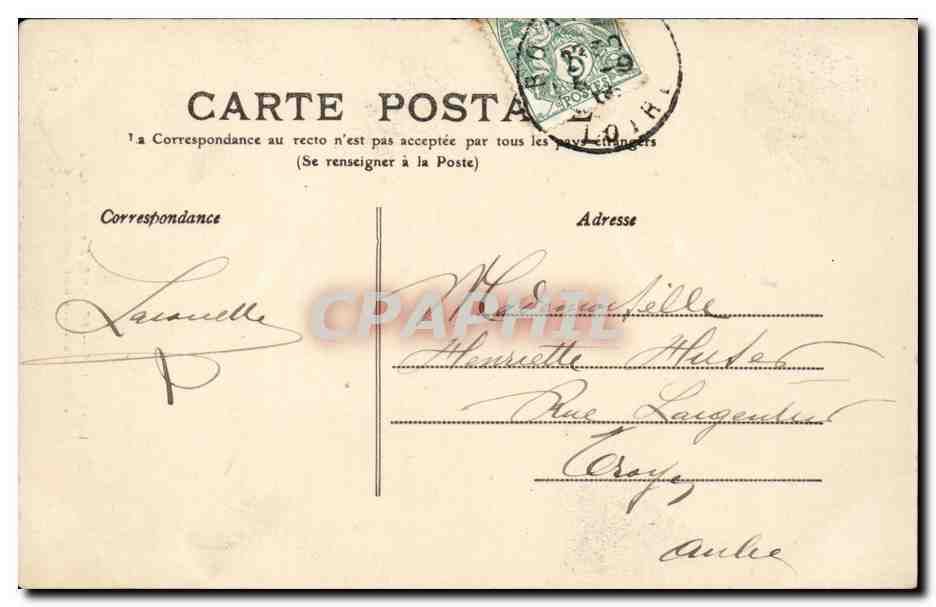 CARTE POSTALE
La Correspondance au recto n'est pas acceptée par tous les pays étrangers
(Se renseigner à la Poste)
POSTES
LOIRE
Correspondance
Adresse
CPAPHIL
Mademoiselle
Henriette
Rue Largentier
Troyes
Aube